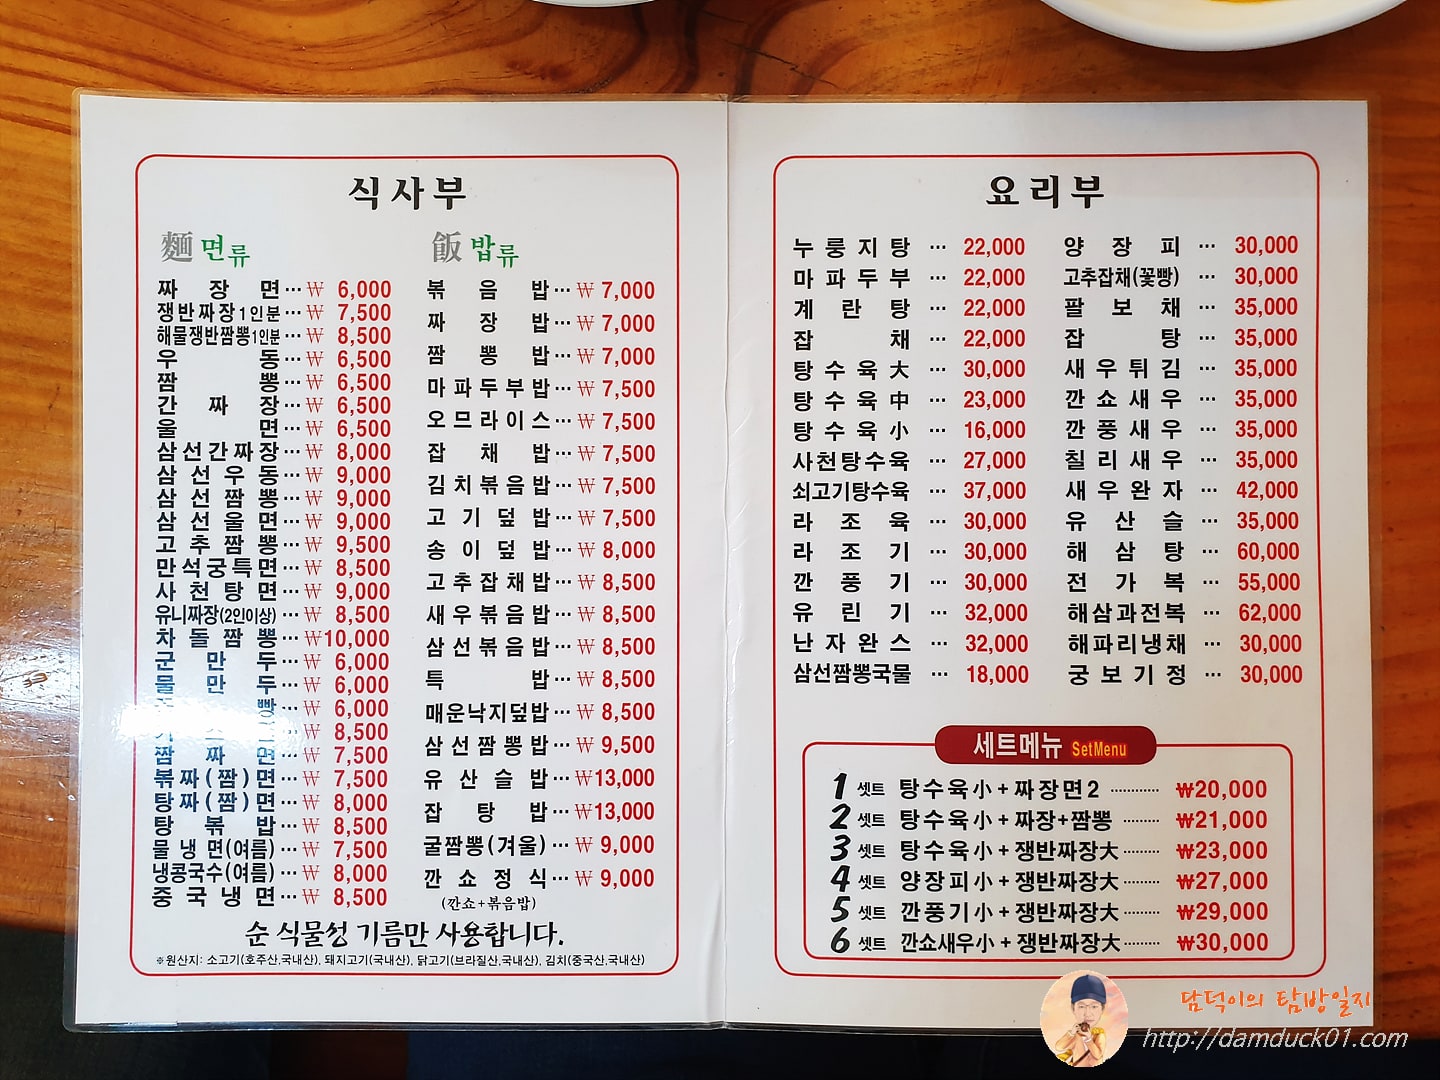 식사부
麵 면류
짜장면 ··· ₩ 6,000
쟁반짜장1인분 ··· ₩ 7,500
해물쟁반짬뽕1인분 ··· ₩ 8,500
우동 ··· ₩ 6,500
짬뽕 ··· ₩ 6,500
간짜장 ··· ₩ 6,500
울면 ··· ₩ 6,500
삼선간짜장 ··· ₩ 8,000
삼선우동 ··· ₩ 9,000
삼선짬뽕 ··· ₩ 9,000
삼선울면 ··· ₩ 9,000
고추짬뽕 ··· ₩ 9,500
만석궁특면 ··· ₩ 8,500
사천탕면 ··· ₩ 9,000
유니짜장(2인이상) ··· ₩ 8,500
차돌짬뽕 ··· ₩10,000
군만두 ··· ₩ 6,000
물만두 ··· ₩ 6,000
빵 ··· ₩ 6,000
₩ 8,500
짬짜면 ··· ₩ 7,500
볶짜(짬)면 ··· ₩ 7,500
탕짜(짬)면 ··· ₩ 8,000
탕볶밥 ··· ₩ 8,500
물냉면(여름) ··· ₩ 7,500
냉콩국수(여름) ··· ₩ 8,000
중국냉면 ··· ₩ 8,500
飯 밥류
볶음밥 ··· ₩ 7,000
짜장밥 ··· ₩ 7,000
짬뽕밥 ··· ₩ 7,000
마파두부밥 ··· ₩ 7,500
오므라이스 ··· ₩ 7,500
잡채밥 ··· ₩ 7,500
김치볶음밥 ··· ₩ 7,500
고기덮밥 ··· ₩ 7,500
송이덮밥 ··· ₩ 8,000
고추잡채밥 ··· ₩ 8,500
새우볶음밥 ··· ₩ 8,500
삼선볶음밥 ··· ₩ 8,500
특밥 ··· ₩ 8,500
매운낙지덮밥 ··· ₩ 8,500
삼선짬뽕밥 ··· ₩ 9,500
유산슬밥 ··· ₩13,000
잡탕밥 ··· ₩13,000
굴짬뽕(겨울) ··· ₩ 9,000
깐쇼정식 ··· ₩ 9,000
(깐쇼+볶음밥)
순 식물성 기름만 사용합니다.
※원산지: 소고기(호주산,국내산), 돼지고기(국내산), 닭고기(브라질산,국내산), 김치(중국산,국내산)
요리부
누룽지탕 ··· 22,000
마파두부 ··· 22,000
계란탕 ··· 22,000
잡채 ··· 22,000
탕수육大 ··· 30,000
탕수육中 ··· 23,000
탕수육小 ··· 16,000
사천탕수육 ··· 27,000
쇠고기탕수육 ··· 37,000
라조육 ··· 30,000
라조기 ··· 30,000
깐풍기 ··· 30,000
유린기 ··· 32,000
난자완스 ··· 32,000
삼선짬뽕국물 ··· 18,000
양장피 ··· 30,000
고추잡채(꽃빵) ··· 30,000
팔보채 ··· 35,000
잡탕 ··· 35,000
새우튀김 ··· 35,000
깐쇼새우 ··· 35,000
깐풍새우 ··· 35,000
칠리새우 ··· 35,000
새우완자 ··· 42,000
유산슬 ··· 35,000
해삼탕 ··· 60,000
전가복 ··· 55,000
해삼과전복 ··· 62,000
해파리냉채 ··· 30,000
궁보기정 ··· 30,000
세트메뉴 SetMenu
1 셋트 탕수육小+짜장면2 ············ ₩20,000
2 셋트 탕수육小+짜장+짬뽕 ········· ₩21,000
3 셋트 탕수육小+쟁반짜장大 ········· ₩23,000
4 셋트 양장피小+쟁반짜장大 ········· ₩27,000
5 셋트 깐풍기小+쟁반짜장大 ········· ₩29,000
6 셋트 깐쇼새우小+쟁반짜장大 ········· ₩30,000
담덕이의 탐방일지
http://damduck01.com